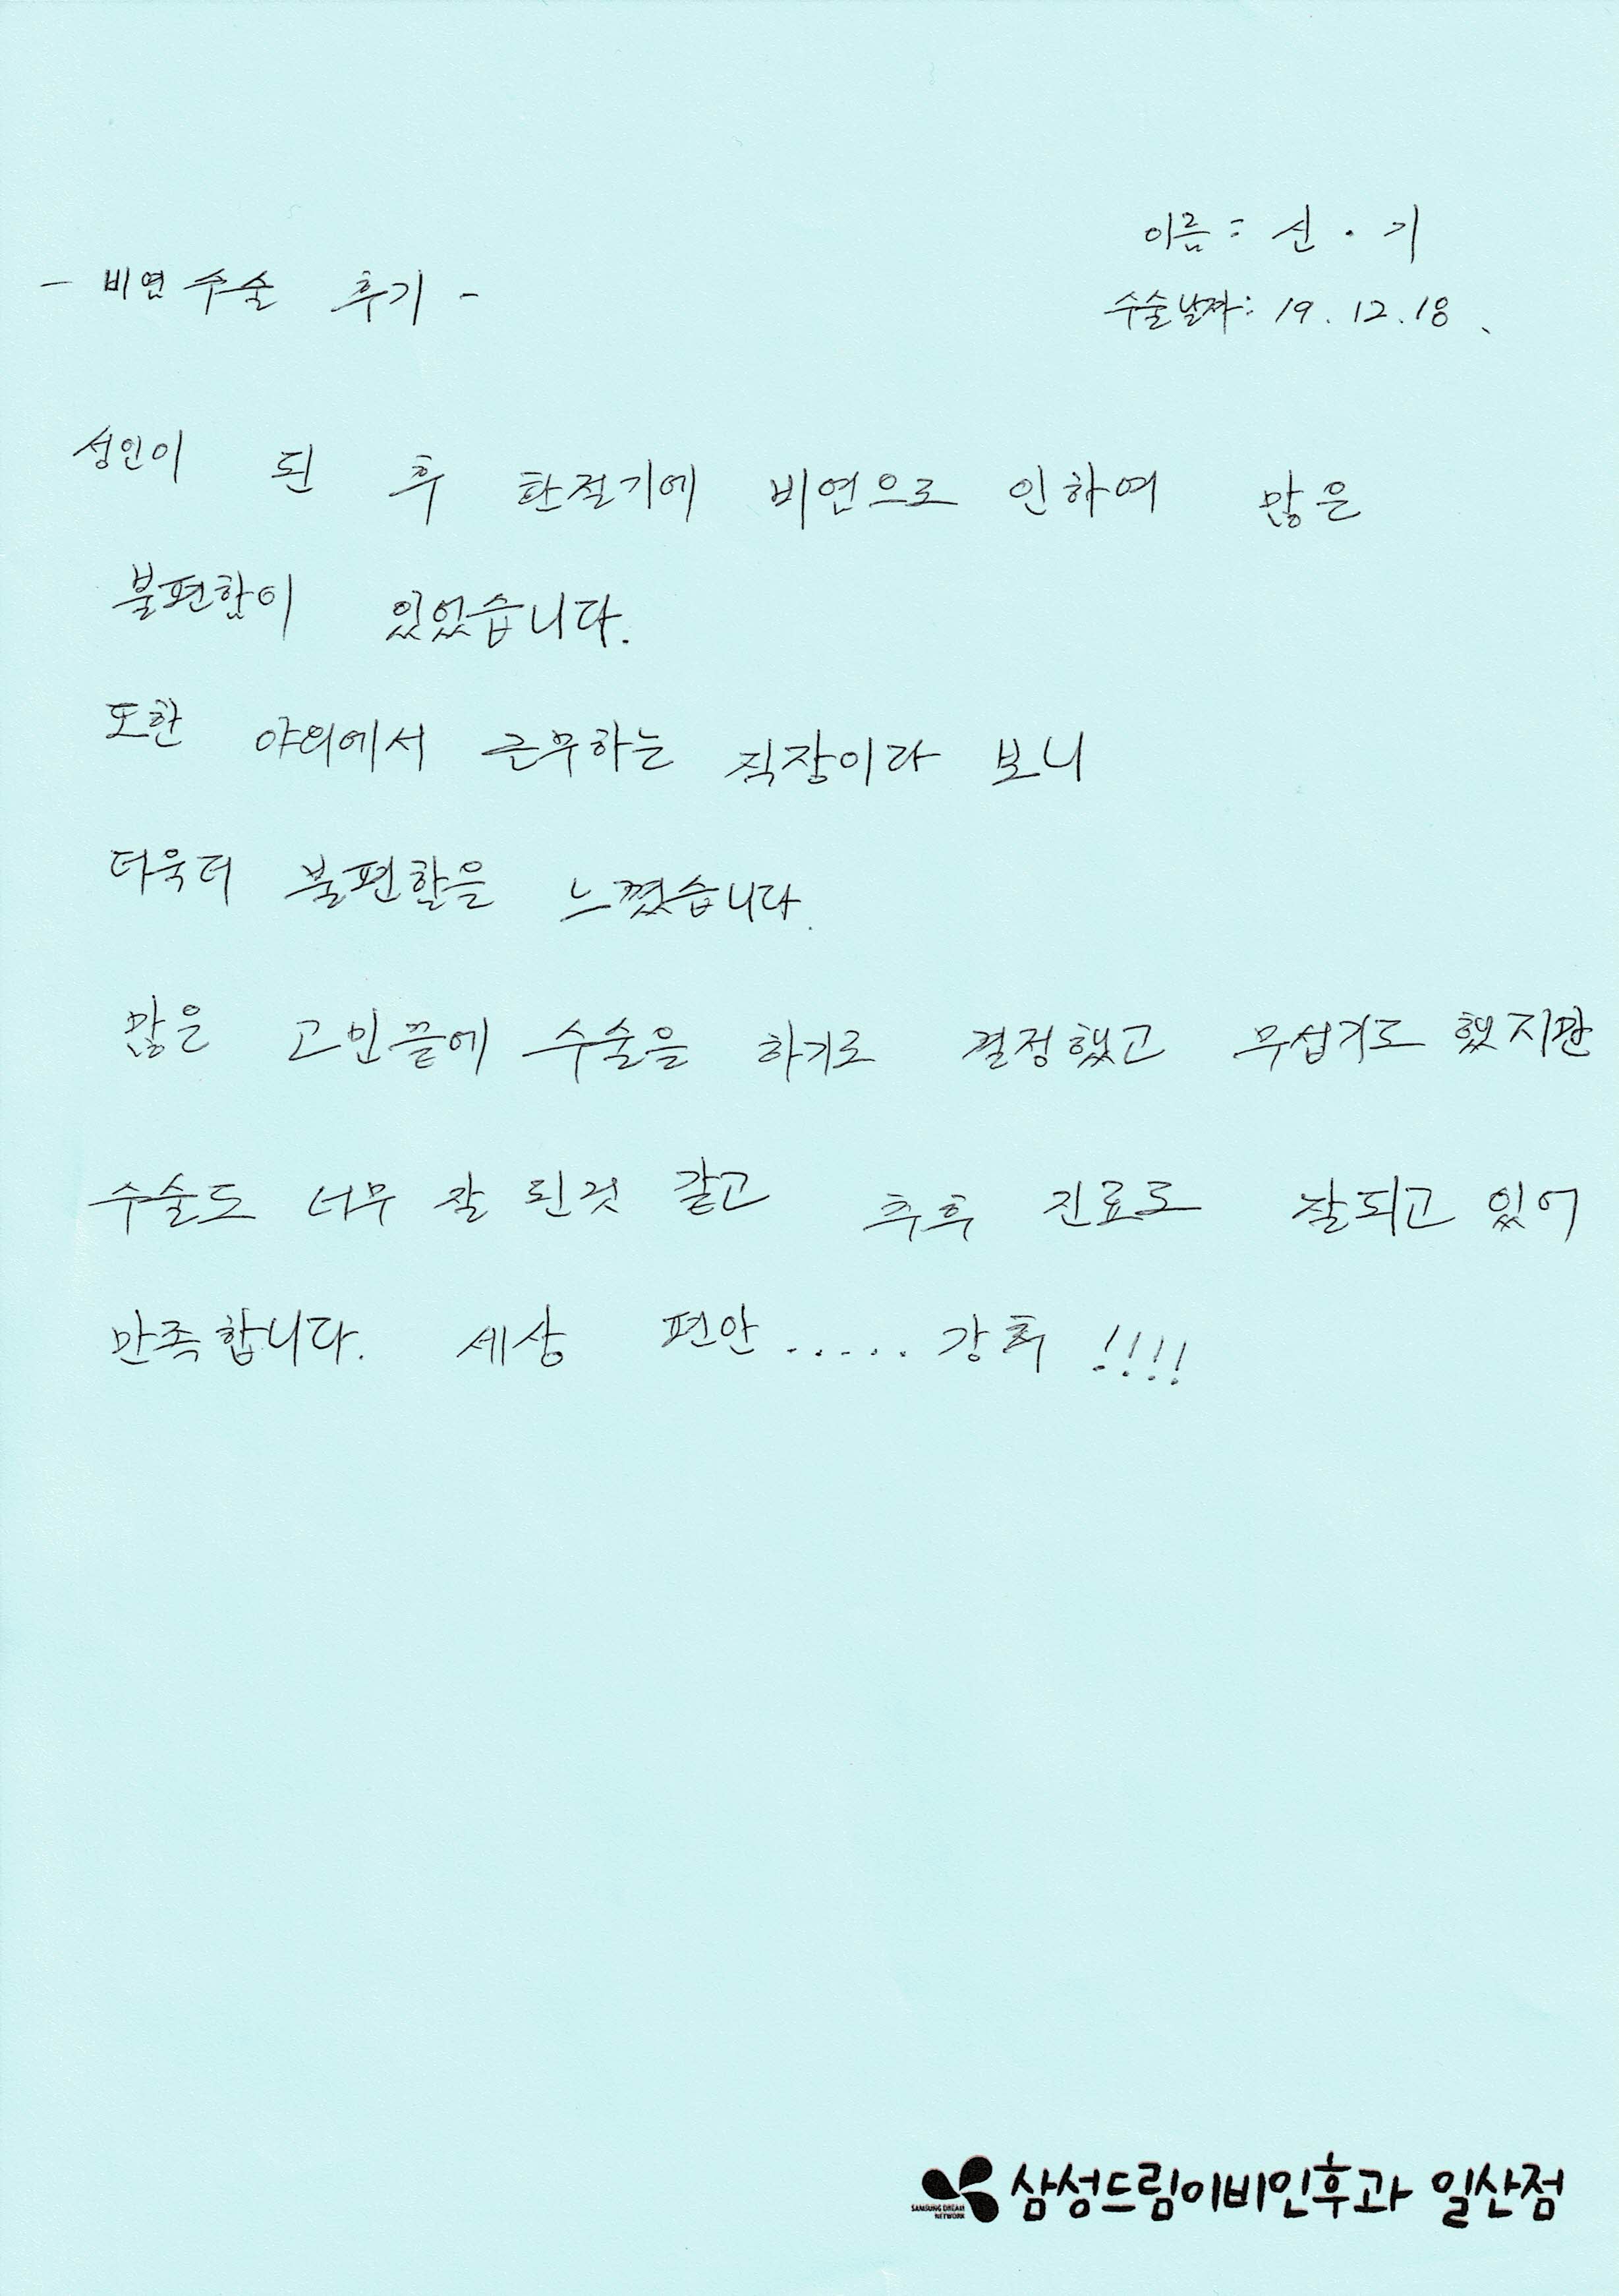 이름 : 신 · 기
- 비염 수술 후기 -
수술날짜 : 19. 12. 18.
성인이 된 후 환절기에 비연으로 인하여 많은
불편함이 있었습니다.
또한 야외에서 근무하는 직장이라 보니
더욱더 불편함을 느꼈습니다.
많은 고민끝에 수술을 하기로 결정했고 무섭기도 했지만
수술도 너무 잘 된것 같고 추후 진료도 잘되고 있어
만족합니다. 세상 편안 ..... 강추 !!!!
삼성드림이비인후과 일산점
SAMSUNG DREAM
NETWORK